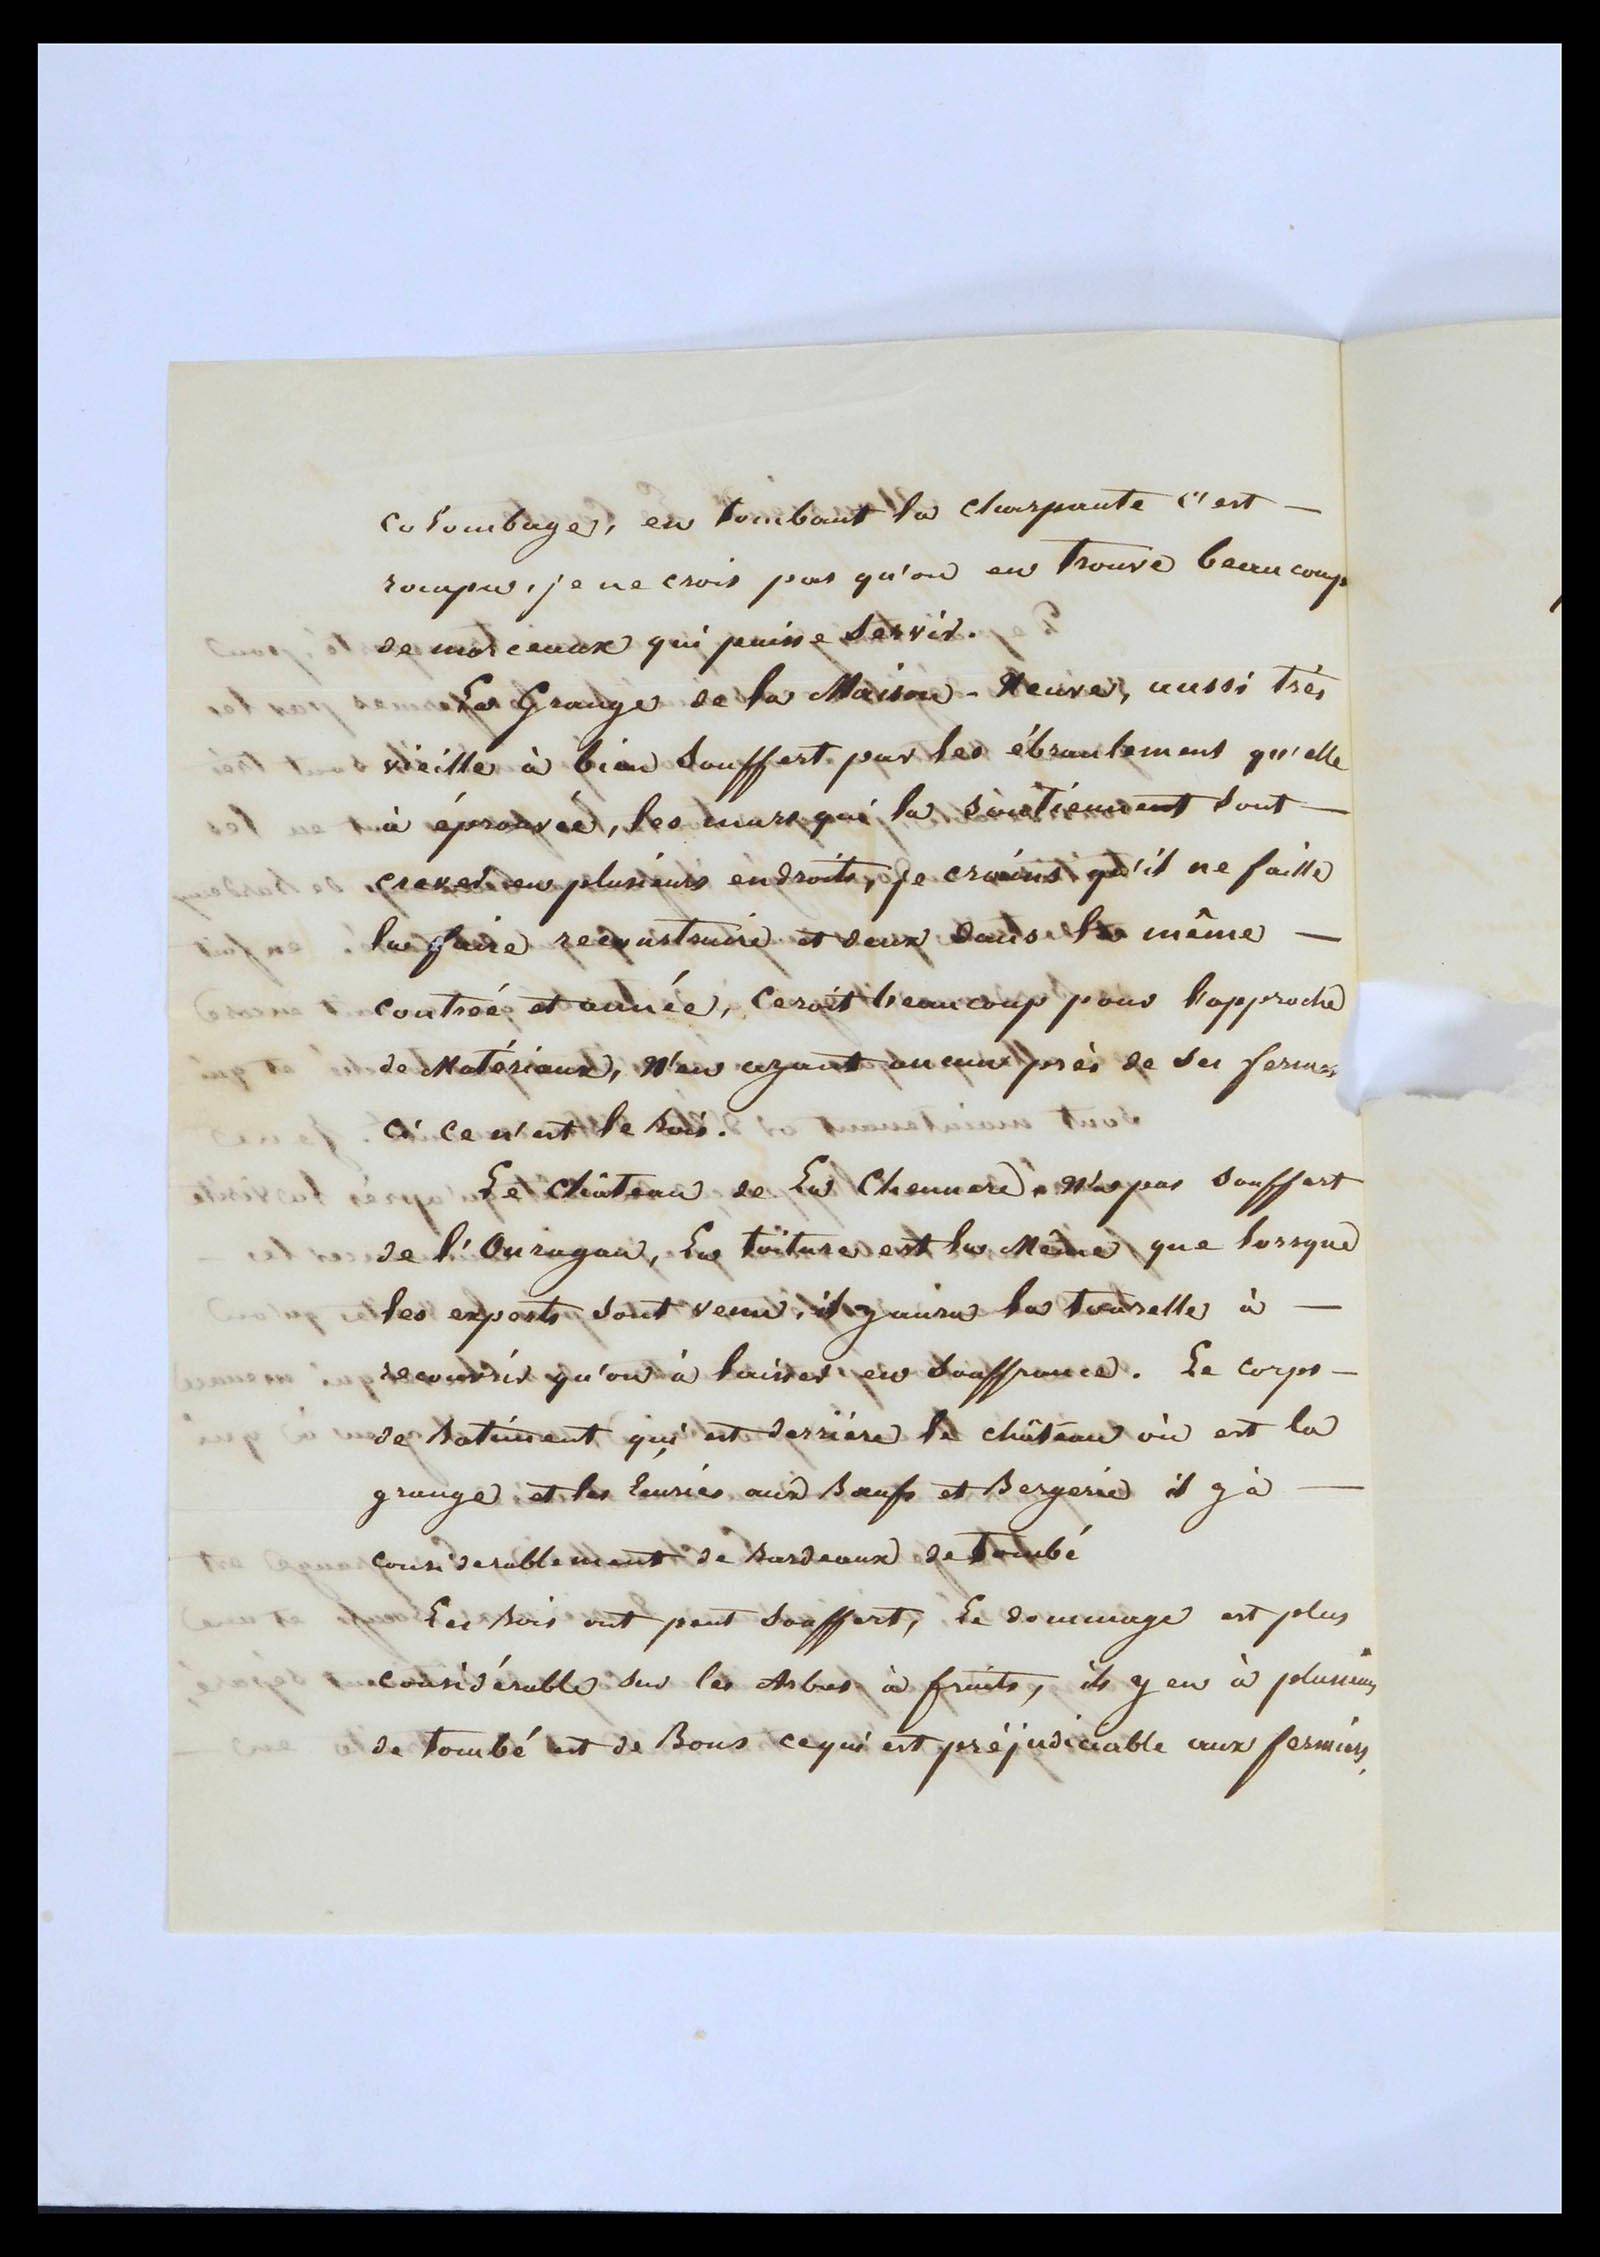 colombage, en tombant la charpante c'est —
rompu, je ne crois pas qu'on en trouve beaucoup
de morceaux qui puisse servir.
La Grange de la Maison-Neuve, aussi très
vieille à bien souffert par les ébranlement qu'elle
à éprouvée, les murs qui la soutiennent sont —
crever en plusieurs endroits, je crains qu'il ne faille
la faire reconstruire et deux dans la même —
contrée et année, ceroit beaucoup pour l'approche
de Matériaux, N'en ayant aucun près de ses fermes
ci ce n'est le Bois.
Le Château de La Chennere, N'a pas souffert
de l'Ouragan, La toiture est la Même que lorsque
les experts sont venu, il y aura la tourelle à —
recouvrir qu'on à laisser en souffrance. Le corps —
de Batiment qui est derrière le château où est la
grange et les Écuries aux Bœufs et Bergerie il y à —
considerablement de Bardeaux de tombé
Les Bois ont peut souffert, Le dommage est plus
considérable sur les Arbres à fruits, ils y en à plusieurs
de tombé et de Bons ce qui est préjudiciable aux fermiers,